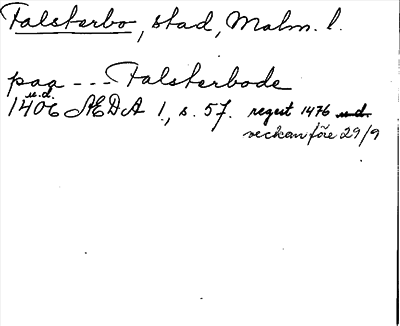 Falsterbo, stad, Malm. l.
paa --- Falsterbode
u.d.
1406 ÆDA 1, s. 57. regest 1476 u.d.
veckan före 29/9